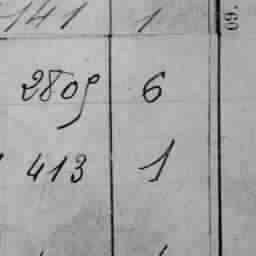 141 1
2809 6
413 1